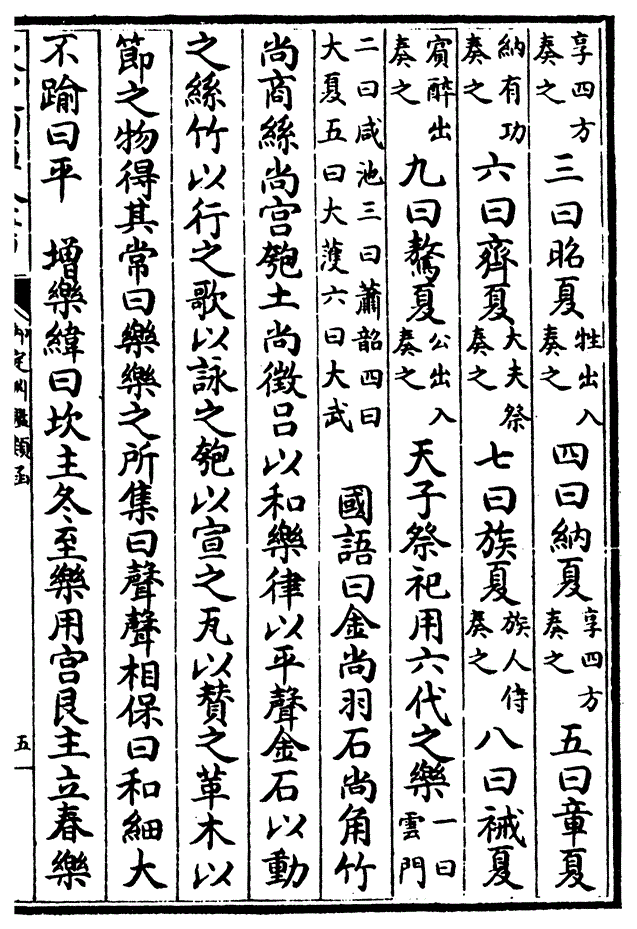 享四方奏之三曰昭夏牲出入奏之四曰納夏享四方奏之五曰章夏
納有功奏之六曰齊夏大夫祭奏之七曰族夏族人侍奏之八曰祴夏
賓醉出奏之九曰驁夏公出入奏之天子祭祀用六代之樂一曰雲門
二曰咸池三曰蕭韶四曰大夏五曰大濩六曰大武 國語曰金尚羽石尚角竹
尚商絲尚宫匏土尚徵吕以和樂律以平聲金石以動
之絲竹以行之歌以詠之匏以宣之瓦以賛之革木以
節之物得其常曰樂樂之所集曰聲聲相保曰和細大
不踰曰平 增樂緯曰坎主冬至樂用宫艮主立春樂
御定淵鑑類函
五